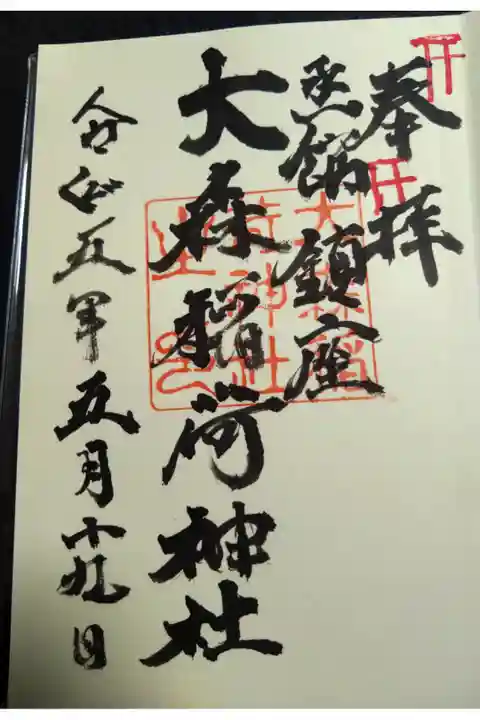 奉拝
函館鎮座
大森稲荷神社
令和五年五月十九日
大森稲
荷神社
之印